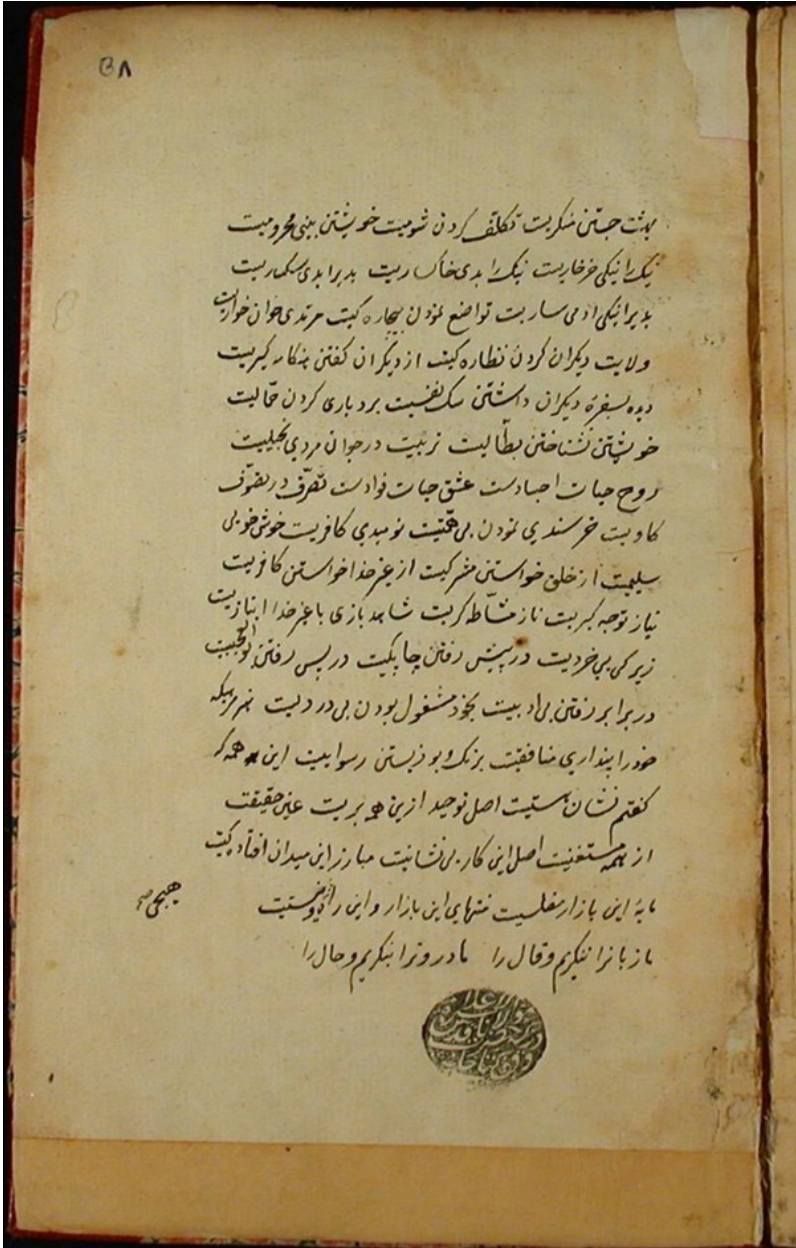 ۵۸
بهشت جستن منکریت تکلف کردن شومیت خویشتن بینی محرومیت
نیک را نیکی خرخاریت نیک را بدی خاکساریت بد را بدی سکساریت
بد را نیکی ادمی ساریت تواضع نمودن بیچاره کیت مرتدی جوان خواریت
ولایت دیکران کردن نظاره کیت از دیکران کفتن هنکامه کیریت
دیده بسفرهٔ دیکران داشتن سک نفسیت بردباری کردن حمّالیت
خویشتن نشناختن بطّالیت تربیت در جوان مردی بخیلیت
روح حیات اجسادست عشق حیات فوادست تصرّف در تصوّف
کاویت خرسندی نمودن بی همّتیت نومیدی کافریت خوش خویی
سلیمیت از خلق خواستن مشرکیت از غیر خدا خواستن کافریت
نیاز توجه کبریت ناز مشّاطه کریت شاهد بازی با غیر خدا انبازیت
زیرکی بی خردیت در پیش رفتن چابکیت در پس رفتن بوالعجبیت
در برابر رفتن بی ادبیت بخود مشغول بودن بی دردیت هنر مریکه
خود را پنداری منافقیت برنک و بو زیستن رسواییت این همه که
کفتم نشان هستیت اصل توحید ازین همه بریت عین حقیقت
از همه مستغنیت اصل این کار بی نشانیت مبارز این میدان افتاده کیت
مایهٔ این بازار مفلسیت منتهای این بازار و این راه نیستیت
هیچی
ما زبانرا ننکریم و قال را ما درونرا بنکریم و حال را